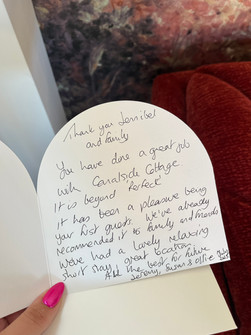 Thank you Jennibel
and family
You have done a great job
with Canalside Cottage.
It is beyond 'Perfect'
It has been a pleasure being
your first guests. We've already
recommended it to family and friends
We've had a lovely relaxing
short stay, great location.
All the best for future
Jeremy, Susan & Ollie